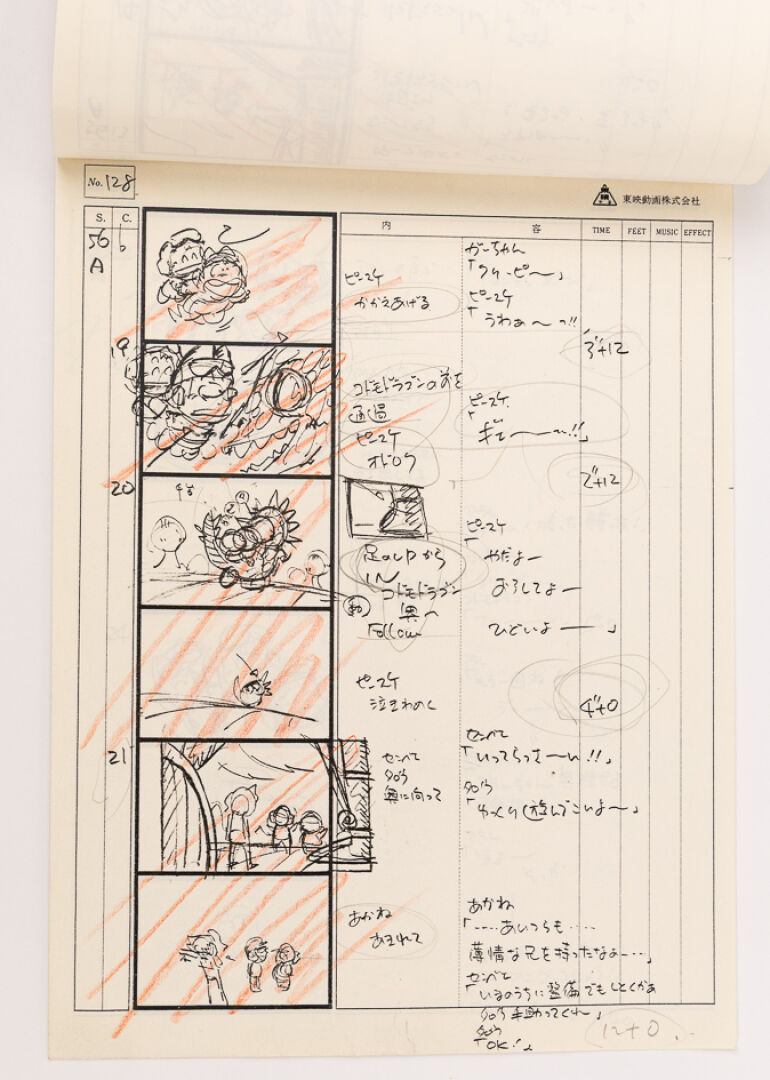 No. 128
東映動画株式会社
S. C. 内 容 TIME FEET MUSIC EFFECT
56 6
A
ガーちゃん
「クリ、ピ〜」
ピースケ
かかえあげる
ピースケ
「うわぁ〜っ!!
3"+12
19
コドモドラゴンの前を
通過
ピースケ
オドロク
ピースケ
2"+12
20
足のUPから
IN
コドモドラゴン
奥へ
Follow
ピースケ
「やだよー
おろしてよー
ひどいよー」
ピースケ
泣きわめく
4"+0
21
センベエ
タロウ
奥に向って
センベエ
「いってらっさーい!!」
タロウ
「ゆっくり遊んでこいよ〜」
あかね
あきれて
あかね
「‥‥あいつらも‥‥
薄情な兄を持ったなぁ‥‥」
センベエ
「いまのうちに整備でもしとくかぁ
タロウ手伝ってくれ〜」
タロウ
「OK!」
12+0